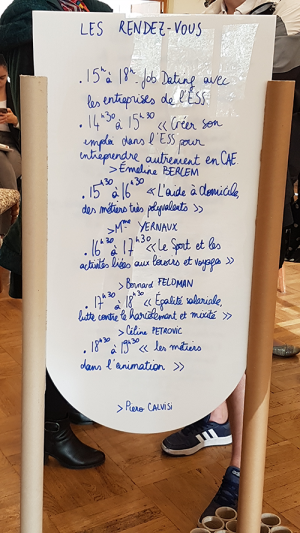 LES RENDEZ-VOUS
. 15h à 18h. Job Dating avec
les entreprises de l'ESS.
. 14h30 à 15h30 << Créer son
emploi dans l'ESS pour
entreprendre autrement en CAE
> Émeline BERLEM
. 15h30 à 16h30 << L'aide à domicile,
des métiers très polyvalents >>
> Mme YERNAUX
. 16h30 à 17h30 << Le Sport et les
activités liées aux loisirs et voyages >>
> Bernard FELDMAN
. 17h30 à 18h30 << Égalité salariale,
lutte contre le harcèlement et mixité >>
> Céline PETROVIC
. 18h30 à 19h30 << les métiers
dans l'animation >>
> Piero CALVISI